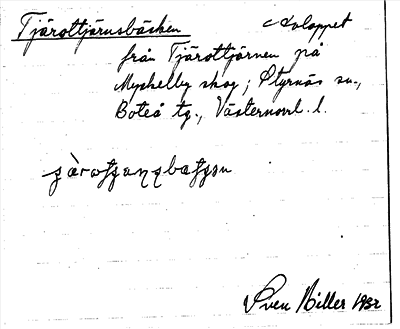 Tjärottjärnsbäcken Avloppet
från Tjärottjärnen på
Myckelby skog; Styrnäs sn.,
Boteå tg., Västernorrl. l.
Sven Hiller 1932